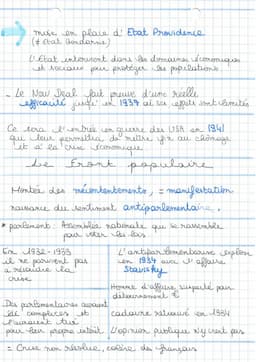 mise en place d'Etat Providence
(≠ Etat Gendarme)
L'Etat intervient dans les domaines économiques
et sociaux pour protéger les populations.
- Le New Deal fait preuve d'une réelle
efficacité jusqu'en 1937 où ses effets sont limités
Ce sera l'entrée en guerre des USA en 1941
qui leur permettra de mettre fin au chômage
et à la crise économique
Le Front populaire
Montée des mécontentements, = manifestation
naissance du sentiment antiparlementaire.
* parlement: Assemblée nationale qui se rassemble
pour voter les lois
En 1932-1933
ils ne parviennent pas
à résoudre la
crise
L'antiparlementarisme explose
en 1934 avec l'affaire
Stavisky
Homme d'affaire suspecté pour
détournement €
Des parlementaires seraient
complices et
l'auraient tué
pour leur propre intérêt
cadavre retrouvé en 1934
L'opinion publique n'y croit pas
= Crise non résolue, colère des français